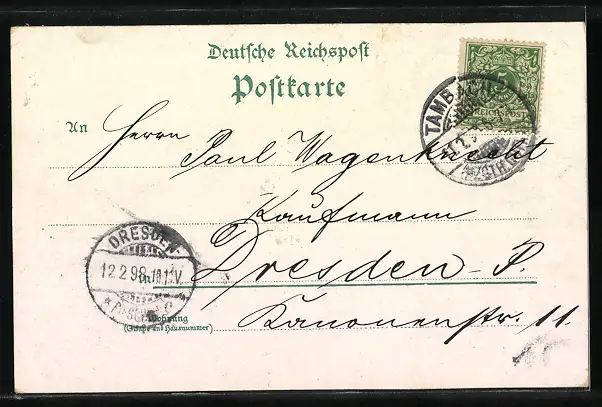 Deutsche Reichspost
Postkarte
5
REICHSPOST
TAMBACH
An Herrn
Paul Wagenknecht
Kaufmann
in Dresden-P.
DRESDEN
12.2.98
Wohnung
(Straße und Hausnummer)
Kanonenstr. 11.